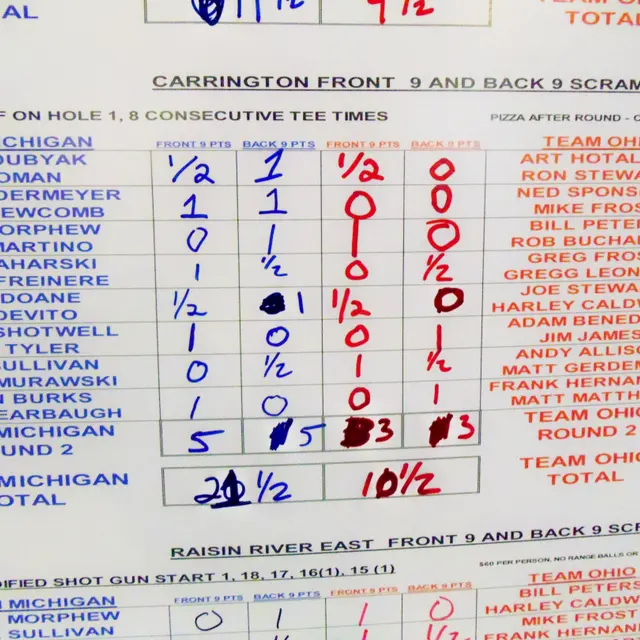 AL 11 1/2 9 1/2 TOTAL
CARRINGTON FRONT 9 AND BACK 9 SCRAM
F ON HOLE 1, 8 CONSECUTIVE TEE TIMES PIZZA AFTER ROUND - C
ICHIGAN FRONT 9 PTS BACK 9 PTS FRONT 9 PTS BACK 9 PTS TEAM OHI
OUBYAK 1/2 1 1/2 0 ART HOTAL
OMAN RON STEWA
DERMEYER 1 1 0 0 NED SPONS
EWCOMB MIKE FROS
ORPHEW 0 1 1 0 BILL PETE
MARTINO ROB BUCHA
AHARSKI 1 1/2 0 1/2 GREG FROS
FREINERE GREGG LEON
DOANE 1/2 1 1/2 0 JOE STEWA
DEVITO HARLEY CALDW
SHOTWELL 1 0 0 1 ADAM BENED
TYLER JIM JAMES
ULLIVAN 0 1/2 1 1/2 ANDY ALLISO
MURAWSKI MATT GERDEM
N BURKS 1 0 0 1 FRANK HERNAN
EARBAUGH MATT MATTH
MICHIGAN 5 5 3 3 TEAM OHIO
UND 2 ROUND 2
MICHIGAN 21 1/2 10 1/2 TEAM OHIO
OTAL TOTAL
RAISIN RIVER EAST FRONT 9 AND BACK 9 SCR
$60 PER PERSON, NO RANGE BALLS OR
DIFIED SHOT GUN START 1, 18, 17, 16(1), 15 (1)
MICHIGAN FRONT 9 PTS BACK 9 PTS FRONT 9 PTS BACK 9 PTS TEAM OHIO
MORPHEW 0 1 1 0 BILL PETERS
SULLIVAN HARLEY CALDW
1/2 MIKE FROST
FRANK HERNAN